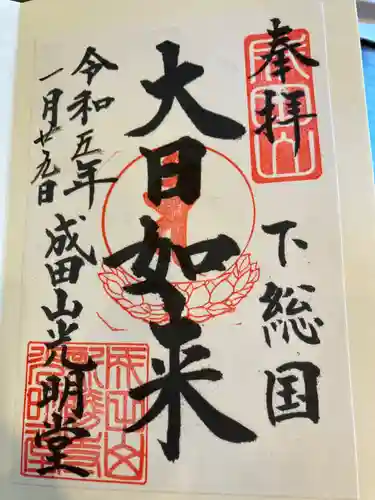 奉拝
下総国
大日如来
令和五年
一月廿九日
成田山光明堂